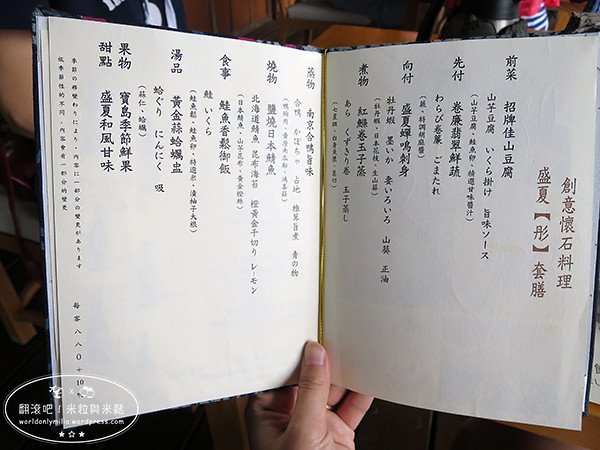 創意懷石料理
盛夏【彤】套膳
前菜
招牌佳山豆腐
山芋豆腐 いくら掛け 旨味ソース
(山芋豆腐、鮭魚卵、精選甘味醬汁)
先付
卷廉翡翠鮮蔬
わらび卷簾 ごまたれ
(蕨、特調胡麻醬)
向付
盛夏蟬鳴刺身
牡丹蝦 墨いか 妻いろいろ 山葵 正油
(牡丹蝦、日本花枝、生山葵)
煮物
紅鰹卷玉子蒸
あら くずきり卷 玉子蒸し
蒸物
南京合鴨旨味
合鴨 かぼちゃ 占地 椎茸旨煮 青の物
燒物
鹽燒日本鯖魚
北海道鯖魚 昆布海苔 橙黃金千切り レーモン
(日本鯖魚、山芋昆布、黃金橙絲)
食事
鮭魚香鬆御飯
鮭 いくら
(鮭魚鬆、鮭魚卵、特選米、漬柚子大根)
湯品
黃金蒜蛤蠣盅
蛤ぐり にんにく 吸
(蒜仁、蛤蠣)
果物
寶島季節鮮果
甜點
盛夏和風甘味
季節の移變わりにより、內容に一部分の變更があります
依季節性的不同，內容會有一部分的變更
每客 八八〇+10%
翻滾吧！米粒與米麩
worldonlymilia.wordpress.com